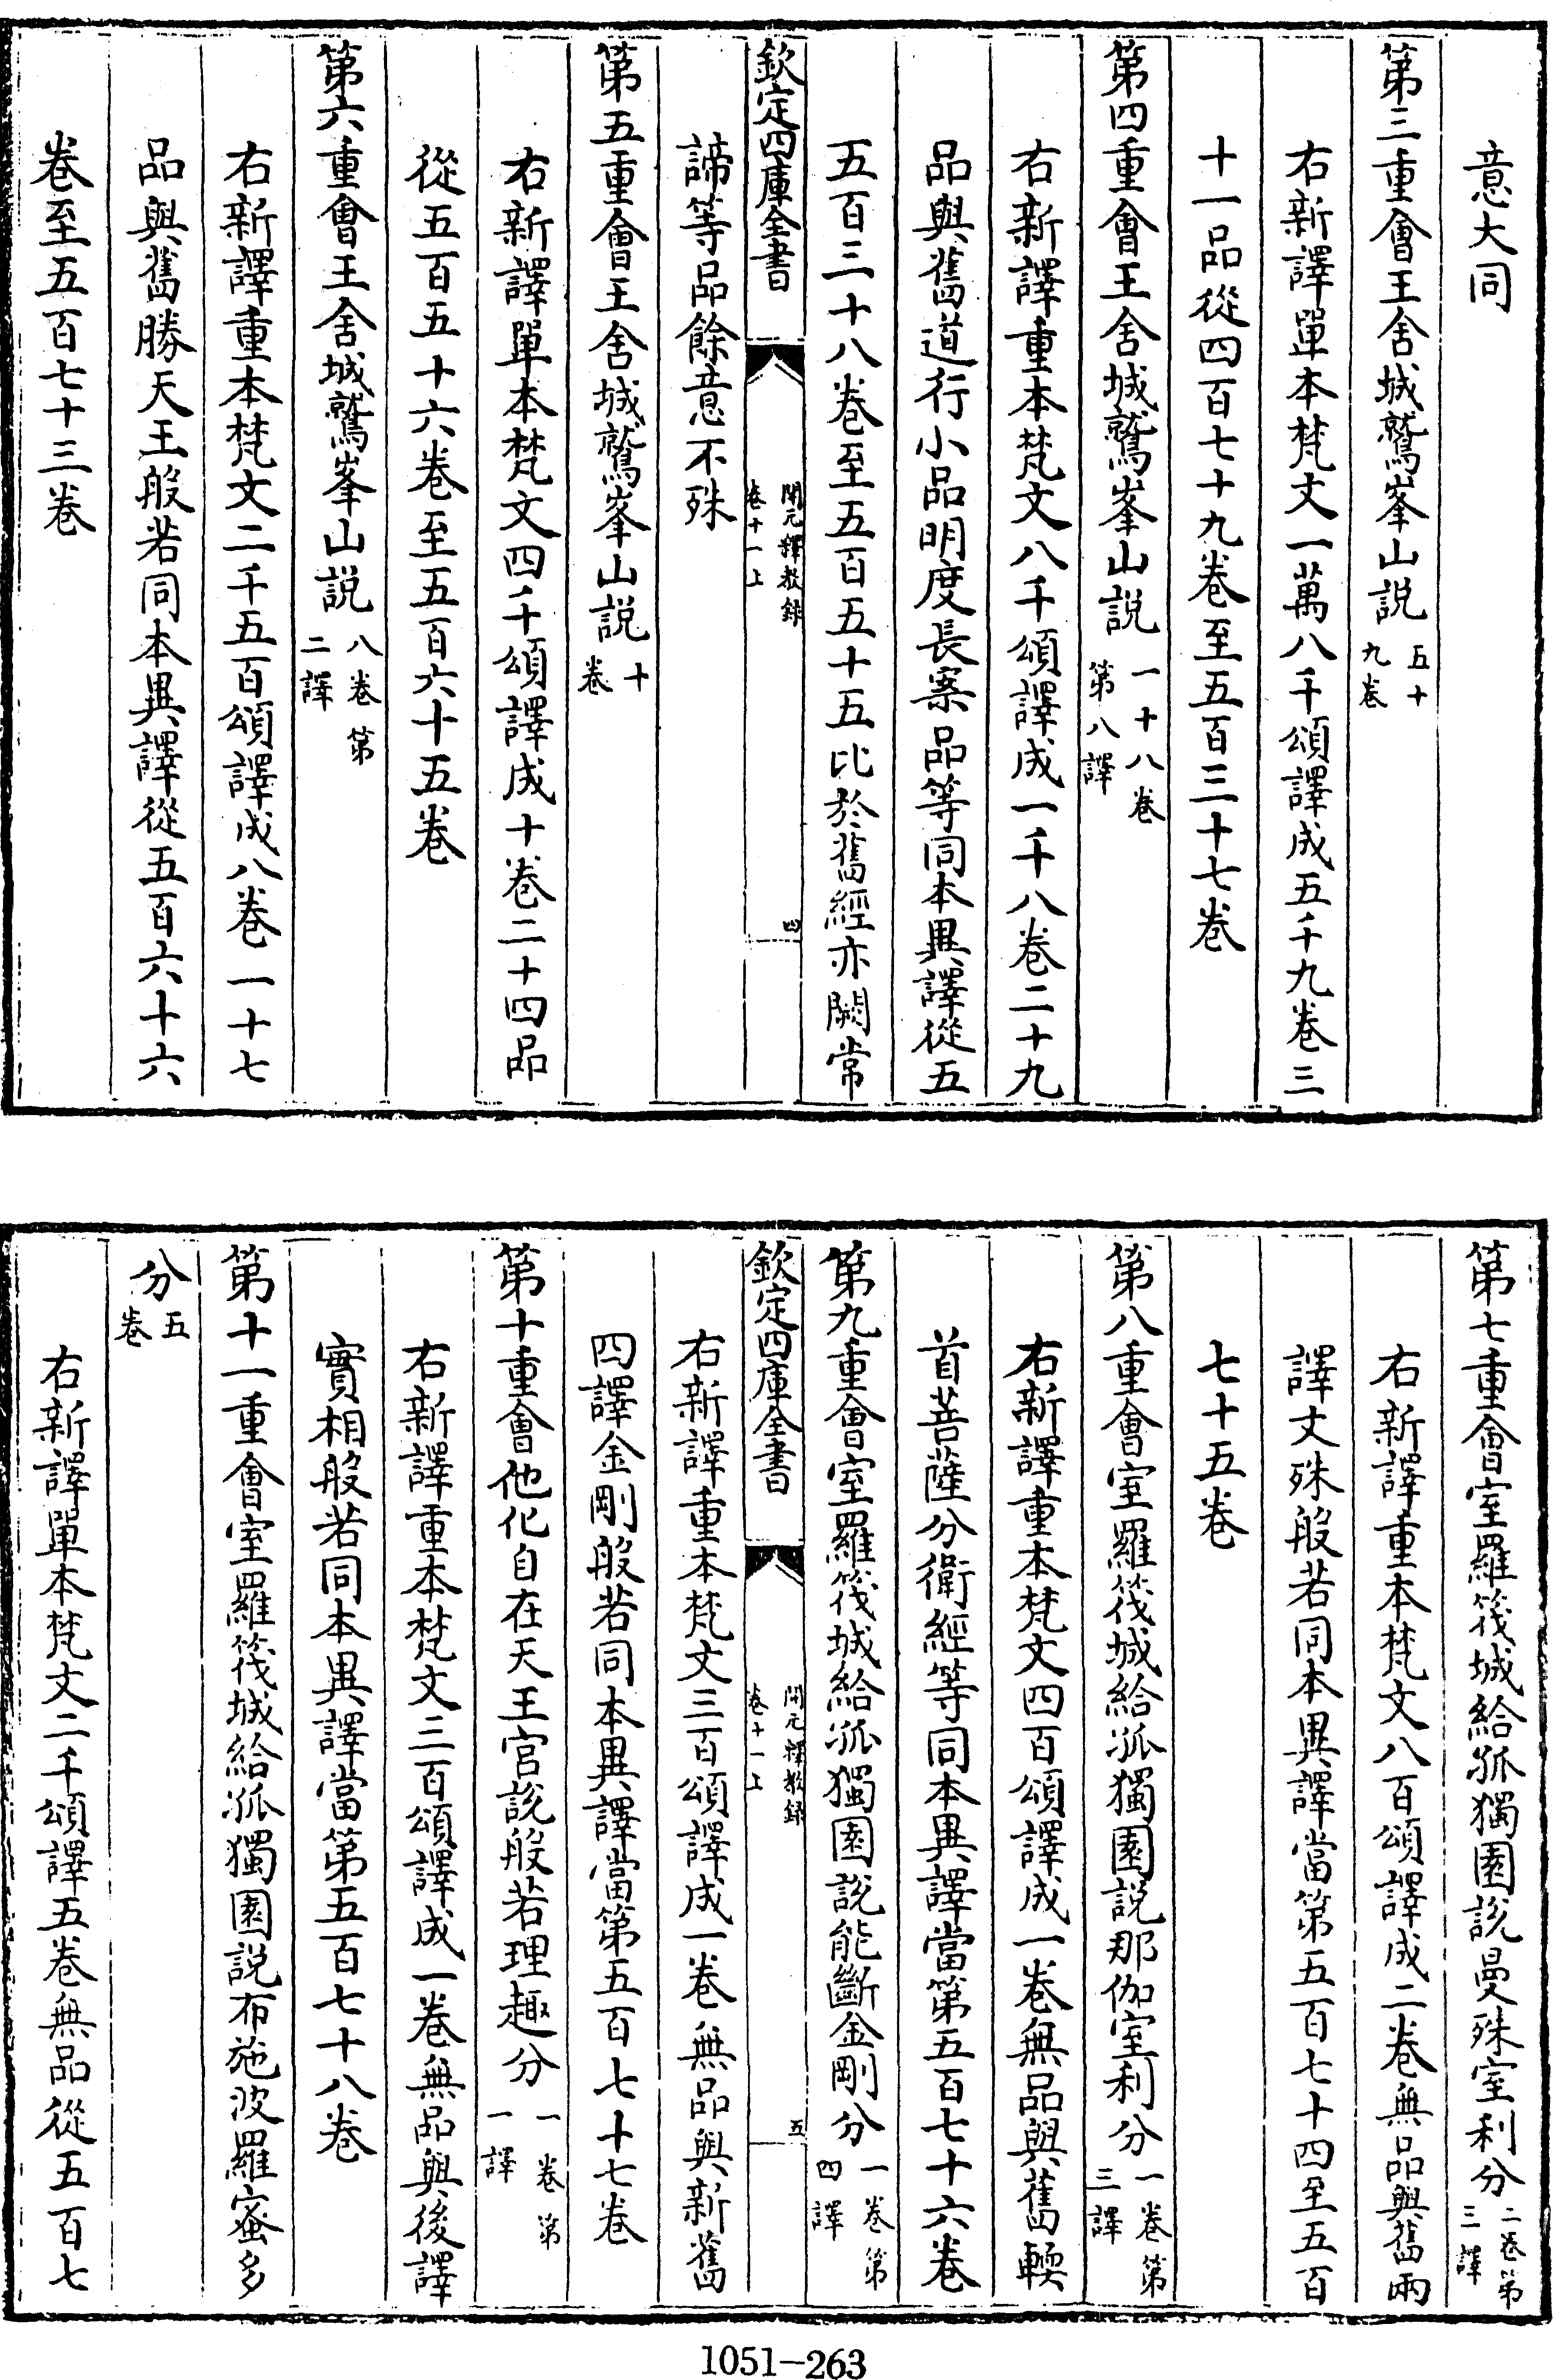 意大同
第三重會王舍城鷲峯山説五十九卷
右新譯單本梵文一萬八千頌譯成五千九卷三
十一品從四百七十九卷至五百三十七卷
第四重會王舍城鷲峯山説一十八卷第八譯
右新譯重本梵文八千頌譯成一千八卷二十九
品與舊道行小品明度長案品等同本異譯從五
五百三十八卷至五百五十五比於舊經亦闕常
欽定四庫全書
開元釋教録
卷十一上
四
諦等品餘意不殊
第五重會王舍城鷲峯山説十卷
右新譯單本梵文四千頌譯成十卷二十四品
從五百五十六卷至五百六十五卷
第六重會王舍城鷲峯山説八卷第二譯
右新譯重本梵文二千五百頌譯成八卷一十七
品與舊勝天王般若同本異譯從五百六十六
卷至五百七十三卷
第七重會室羅筏城給孤獨園説曼殊室利分二卷第三譯
右新譯重本梵文八百頌譯成二卷無品與舊兩
譯文殊般若同本異譯當第五百七十四至五百
七十五卷
第八重會室羅筏城給孤獨園説那伽室利分一卷第三譯
右新譯重本梵文四百頌譯成一卷無品與舊輭
首菩薩分衛經等同本異譯當第五百七十六卷
第九重會室羅筏城給孤獨園説能斷金剛分一卷第四譯
欽定四庫全書
開元釋教録
卷十一上
五
右新譯重本梵文三百頌譯成一卷無品與新舊
四譯金剛般若同本異譯當第五百七十七卷
第十重會他化自在天王宫説般若理趣分一卷第一譯
右新譯重本梵文三百頌譯成一卷無品與後譯
實相般若同本異譯當第五百七十八卷
第十一重會室羅筏城給孤獨園説布施波羅蜜多
分五卷
右新譯單本梵文二千頌譯五卷無品從五百七
1051-263